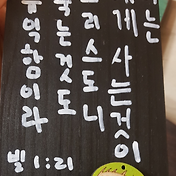 는
게 사는것이
리스도니
는것도
익함이라
빌 1:21